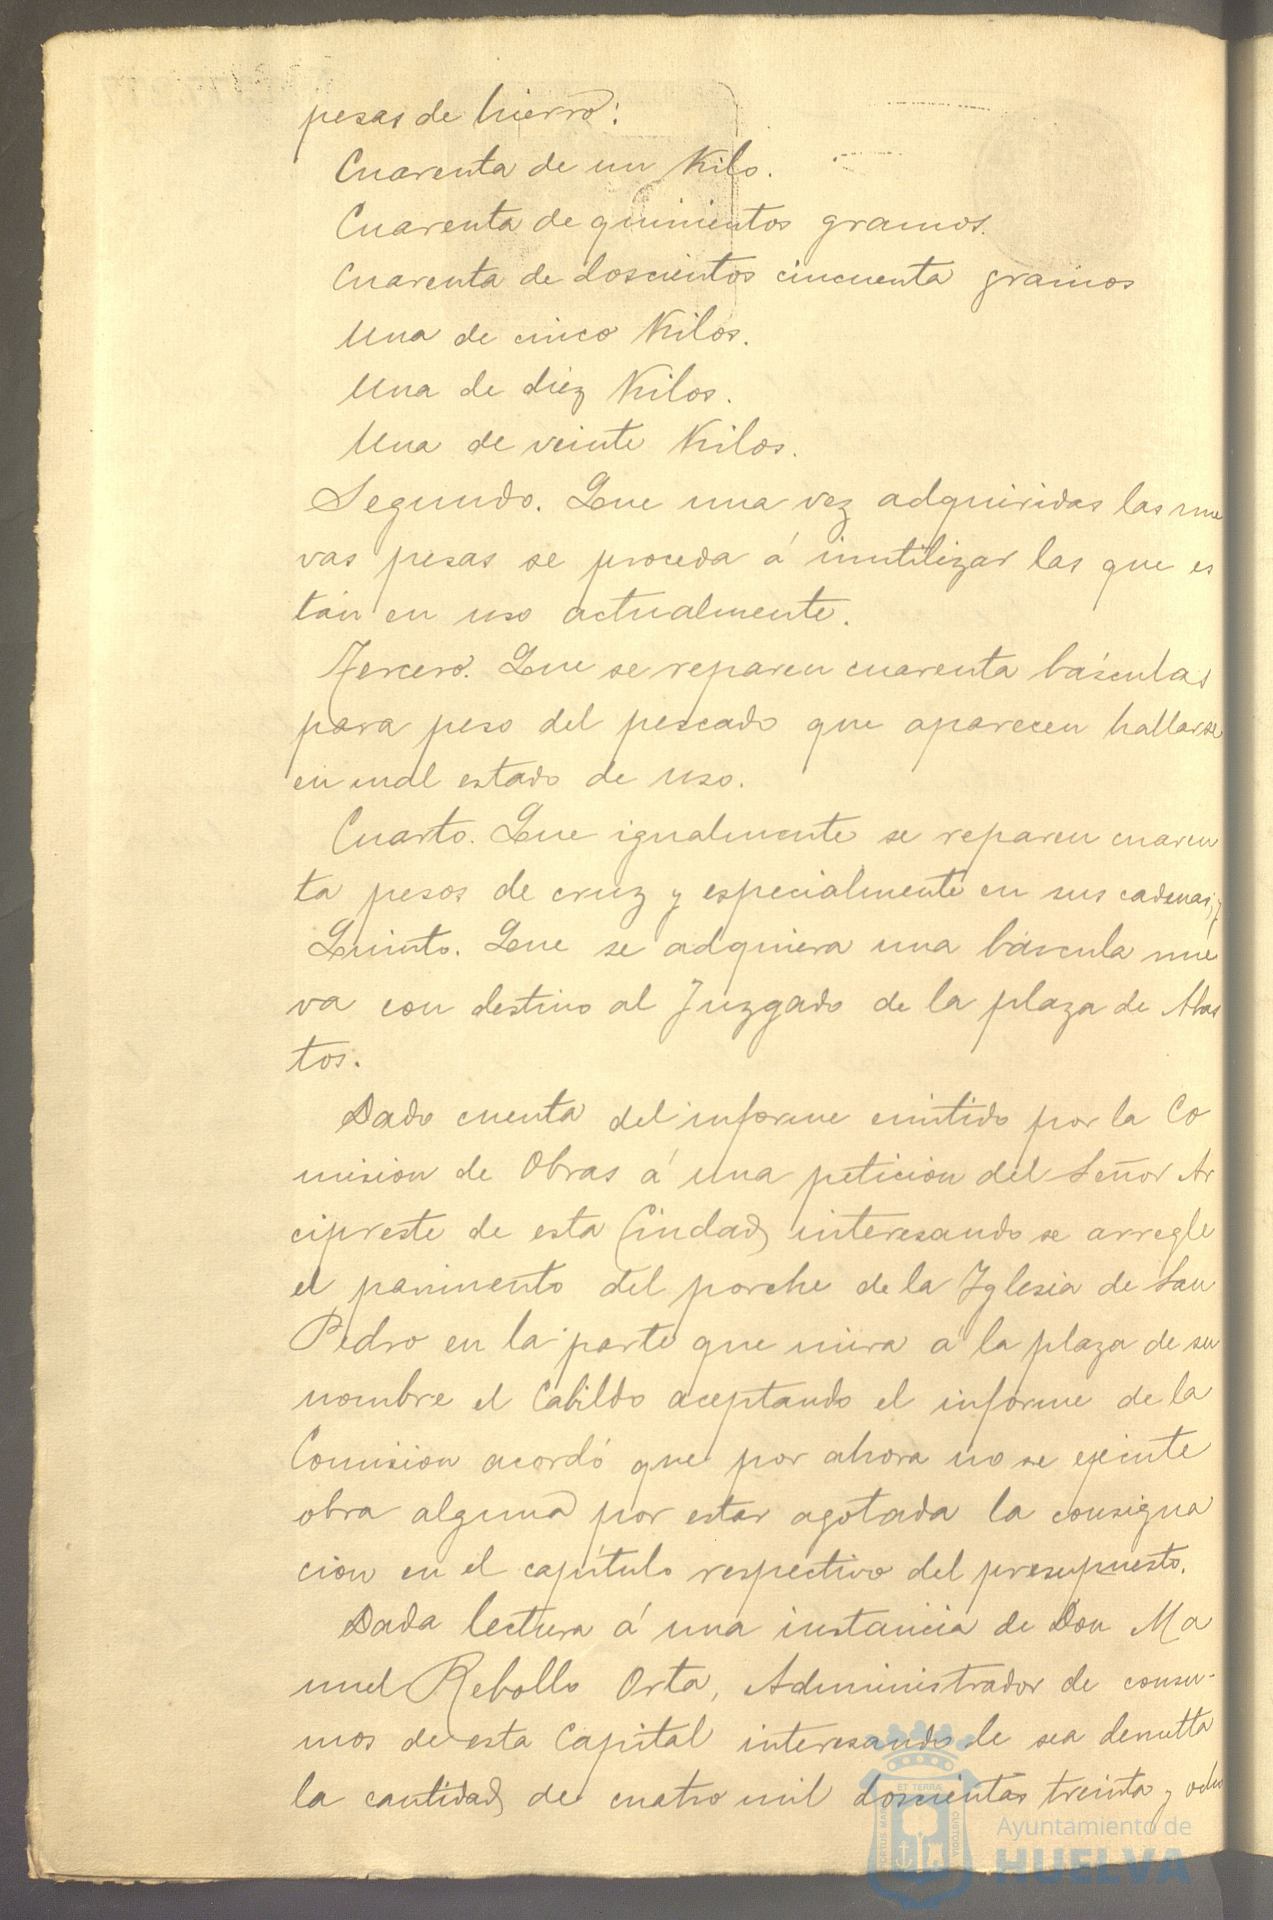 pesas de hierro:
Cuarenta de un Kilo.
Cuarenta de quinientos gramos.
Cuarenta de doscientos cincuenta gramos
Una de cinco Kilos.
Una de diez Kilos.
Una de veinte Kilos.
Segundo. Que una vez adquiridas las nue
vas pesas se proceda á inutilizar las que es
tán en uso actualmente.
Tercero. Que se reparen cuarenta básculas
para peso del pescado que aparecen hallarse
en mal estado de uso.
Cuarto. Que igualmente se reparen cuaren
ta pesos de cruz y especialmente en sus cadenas; y
Quinto. Que se adquiera una báscula nue
va con destino al Juzgado de la plaza de Abas
tos.
Dado cuenta del informe emitido por la Co
misión de Obras á una petición del Señor Ar
cipreste de esta Ciudad, interesando se arregle
el pavimento del porche de la Yglesia de San
Pedro en la parte que mira á la plaza de su
nombre el Cabildo aceptando el informe de la
Comisión acordó que por ahora no se ejecute
obra alguna por estar agotada la consigna
ción en el capítulo respectivo del presupuesto.
Dada lectura á una instancia de Don Ma
nuel Rebollo Orta, Administrador de consu-
mos de esta Capital interesando le sea devuelta
la cantidad de cuatro mil doscientas treinta y ocho
ET TERRÆ
PORTUS MARIS
CUSTODIA
Ayuntamiento de
HUELVA